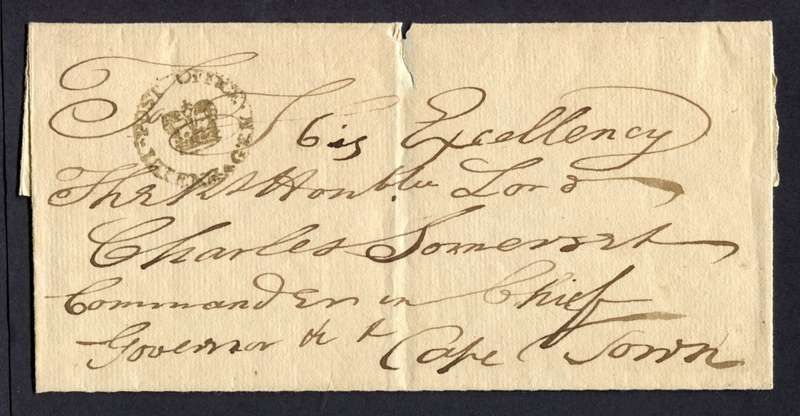 POST OFFICE
To His Excellency
The Rt Honble Lord
Charles Somerset
Commander in Chief
Governor &c &c Cape Town